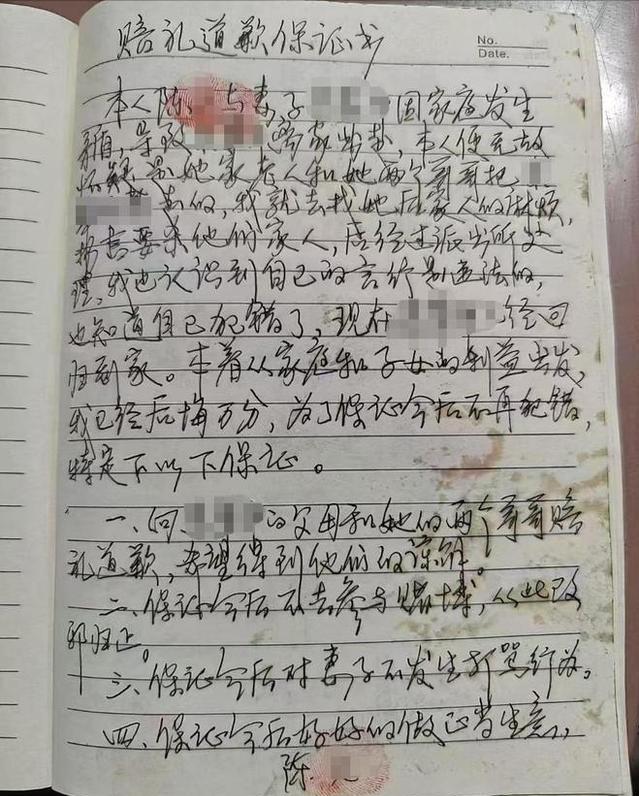 赔礼道歉保证书
No.
Date.
本人陈 与妻子 因家庭发生
矛盾,导致 离家出走,本人便无故
怀疑是她家老人和她两个哥哥把
的,我就去找她后家人的麻烦,
扬言要杀他们家人,后经过派出所处
理,我也认识到自己的言行是违法的,
也知道自己犯错了,现在 经回
归到家。本着从家庭和子女的利益出发,
我已经后悔万分,为了保证今后不再犯错,
特定下以下保证。
一、向 的父母和她的两个哥哥赔
礼道歉,希望得到他们的谅解。
二、保证今后不去参与赌博,从此改
邪归正。
三、保证今后对妻子不发生打骂行为。
四、保证今后好好的做正当生意。
陈